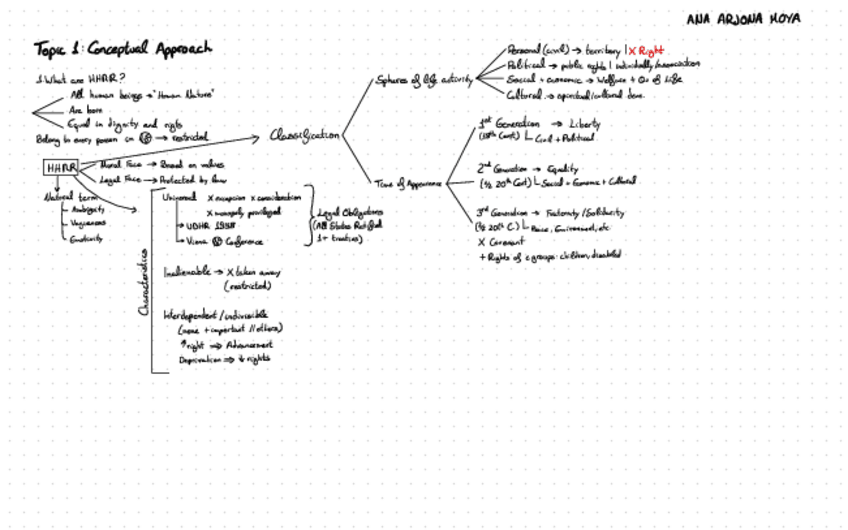 ANA ARJONA MOYA
Topic 1: Conceptual Approach
1. What are HHRR?
All human beings → "Human Nature"
Are born
Equal in dignity and rights
Belong to every person in → restricted
HHRR
Moral Face → Based on values
Legal Face → Protected by law
Natural term
Ambiguity
Vagueness
Emotivity
Characteristics
Universal X exception X consideration
X monopoly privileged
→ UDHR
→ Viena Conference
Legal Obligations
(All States Ratified
1+ treaties)
Inalienable → X taken away
(restricted)
Interdependent / indivisible
(none + important // others)
↑ right ⇒ Advancement
Deprivation ⇒ ↓ rights
Classification
Spheres of life activity
Personal (civil) → territory | X Right
Political → public rights | individually / association
Social + economic → Welfare + Qo of Life
Cultural → spiritual/cultural dem.
Time of Appearance
1st Generation → Liberty
(18th Cent) Civil + Political
2nd Generation → Equality
(½ 20th Cent) Social + Economic + Cultural
3rd Generation → Fraternity / Solidarity
(½ 20th C.) Peace, Environment, etc
X Covenant
+ Rights of groups: children, disabled